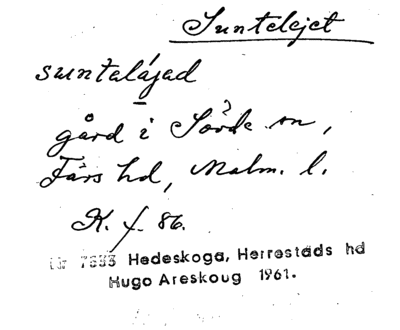 Suntelejet
suntalájad
gård i Sövde sn,
Färs hd, Malm. l.
K. f. 86.
7633 Hedeskoga, Herrestads hd
Hugo Areskoug 1961.